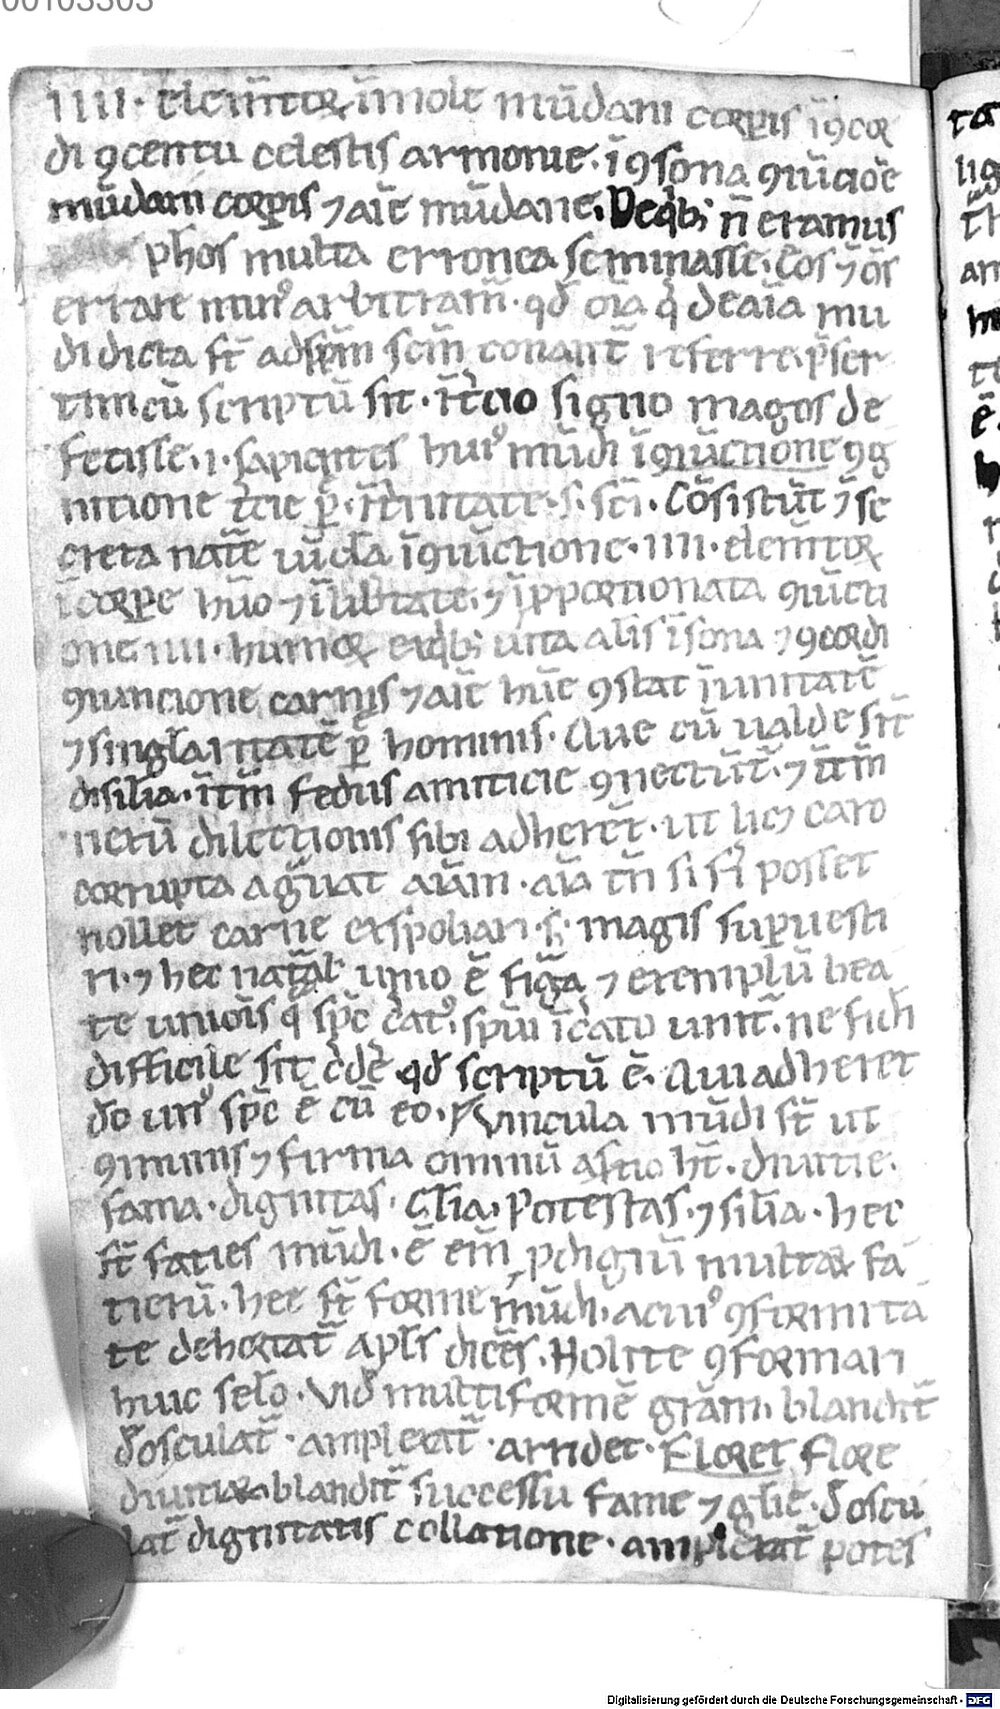 00103303
iiii. elem̄toꝝ ī mole mūdani corꝑis ī ꝯcor
di ꝯcentu celestis armonie. ī ꝯsona ꝯiūctiōe
mūdani corꝑis ⁊ aīe mūdane. De qͥbꝫ n̄ eramus
ph̄os multa erronea seminasse. Eos ⁊
errare arbitram̄. qd̄ oīa q̄ de aīa mū
di dicta st̄ ad sp̄m sc̄m conant̄ referre. p̄ser
tim cū scriptū sit. ī t̄cio signo magos de
fecisse .i. sapientes huiꝰ mūdi ī ꝯg
nitione t̄cie ꝑ. ī t̄nitate .s. sp̄. sc̄i. Cōsistūt ⁊ se
creta nat̄e ī ꝯiūctione .iiii. elem̄toꝝ
ī corꝑe hūo ⁊ ⁊ ī ꝓportionata ꝯiūcti
one iiii. humoꝝ ī sona ⁊ ꝯcordi
ꝯiunctione carnis ⁊ aīe hūe ꝯstat ī unitatē
⁊ singl̄aritatē ꝑ hominis. Que cū ualde sīt
disilia. īt̄m fedus amiticie ꝯnectūt̄. ⁊
dilectionis sibi adherēt. ut licꝫ caro
corrupta ag̈uat aīam. aīa tn̄ si posset
nollet carne exspoliari. s; magis suꝑuesti
ri. ⁊ hec unio ē figͣa ⁊ exemplū bea
te uniōis q̄ sp̄c c̄atꝰ. sp̄ui īc̄ato unit̄. ne
difficile sit c̄de. qd̄ scriptū ē. Qui adheret
do unꝰ sp̄c ē cū eo. Vincula mūdi st̄ ut
ꝯmunis ⁊ firma ominū ht̄. diuitie.
fama. dignitas. gl̄ia. Potestas. ⁊ silīa. hec
st̄ facies mūdi. ē em̄ ꝓdigiū multaꝝ fa
cierū. hee st̄ forme mūdi. a cuiꝰ ꝯformita
te dehortat̄ apl̄s dicēs. Nolite ꝯformari
huic sclo. Vid̄ multiformē gr̄am. blandit̄
d̄osculat̄. amplexat̄. arridet. Floret flore
diuitiaꝝ. blandit̄ successu fame ⁊ gl̄ie. d̄oscu
lat̄ dignitatis collatione. amplexat̄ potes
Digitalisierung gefördert durch die Deutsche Forschungsgemeinschaft - DFG